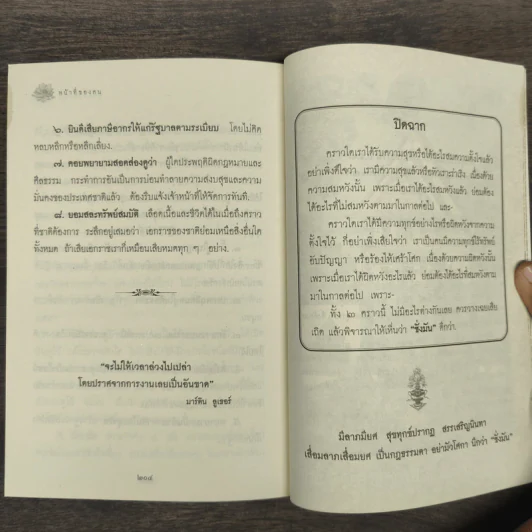 หน้าที่ของคน
๖. ยินดีเสียภาษีอากรให้แก่รัฐบาลตามระเบียบ โดยไม่คิด
หลบหลีกหรือหลีกเลี่ยง.
๗. คอยพยายามสอดส่องดูว่า ผู้ใดประพฤติผิดกฎหมายและ
ศีลธรรม กระทำการอันเป็นการบ่อนทำลายความสงบสุขและความ
มั่นคงของประเทศชาติแล้ว ต้องรีบแจ้งเจ้าหน้าที่ให้จัดการทันที.
๘. ยอมสละทรัพย์สมบัติ เลือดเนื้อและชีวิตได้ในเมื่อถึงคราว
ที่ชาติต้องการ ระลึกอยู่เสมอว่า เอกราชของชาติย่อมเหนือสิ่งอื่นใด
ทั้งหมด ถ้าเสียเอกราชเราก็เหมือนเสียหมดทุก ๆ อย่าง.
"จะไม่ให้เวลาล่วงไปเปล่า
โดยปราศจากการงานเลยเป็นอันขาด"
มาร์ติน ลูเธอร์
๒๐๔
ปิดฉาก
คราวใดเราได้รับความสุขหรือได้อะไรสมความตั้งใจแล้ว
อย่าเพิ่งดีใจว่า เรามีความสุขแล้วหรือทัวเราร่ำเริง เนื่องด้วย
ความสมหวังนั้น เพราะเมื่อเราได้อะไรสมหวังแล้ว ย่อมต้อง
ได้อะไรที่ไม่สมหวังตามมาในกาลต่อไป และ-
คราวใดเราได้มีความทุกข์อย่างไรหรือผิดหวังจากความ
ตั้งใจไว้ ก็อย่าเพิ่งเสียใจว่า เราเป็นคนมีความทุกข์ไร้ทรัพย์
อับปัญญา หรือร้องไห้เศร้าโศก เนื่องด้วยความผิดหวังนั้น
เพราะเมื่อเราได้ผิดหวังอะไรแล้ว ย่อมต้องได้อะไรที่สมหวังตาม
มาในกาลต่อไป เพราะ-
ทั้ง ๒ คราวนี้ ไม่มีอะไรต่างกันเลย ควรวางเฉยเสีย
เปิด แล้วพิจารณาให้เห็นว่า "ชั่งมัน" ดีกว่า.
มีลาภมียศ สุขทุกข์ปรากฏ สรรเสริญนินทา
เสื่อมลาภเสื่อมยศ เป็นกฎธรรมดา อย่ามัวโศกา นึกว่า "ชั่งมัน"